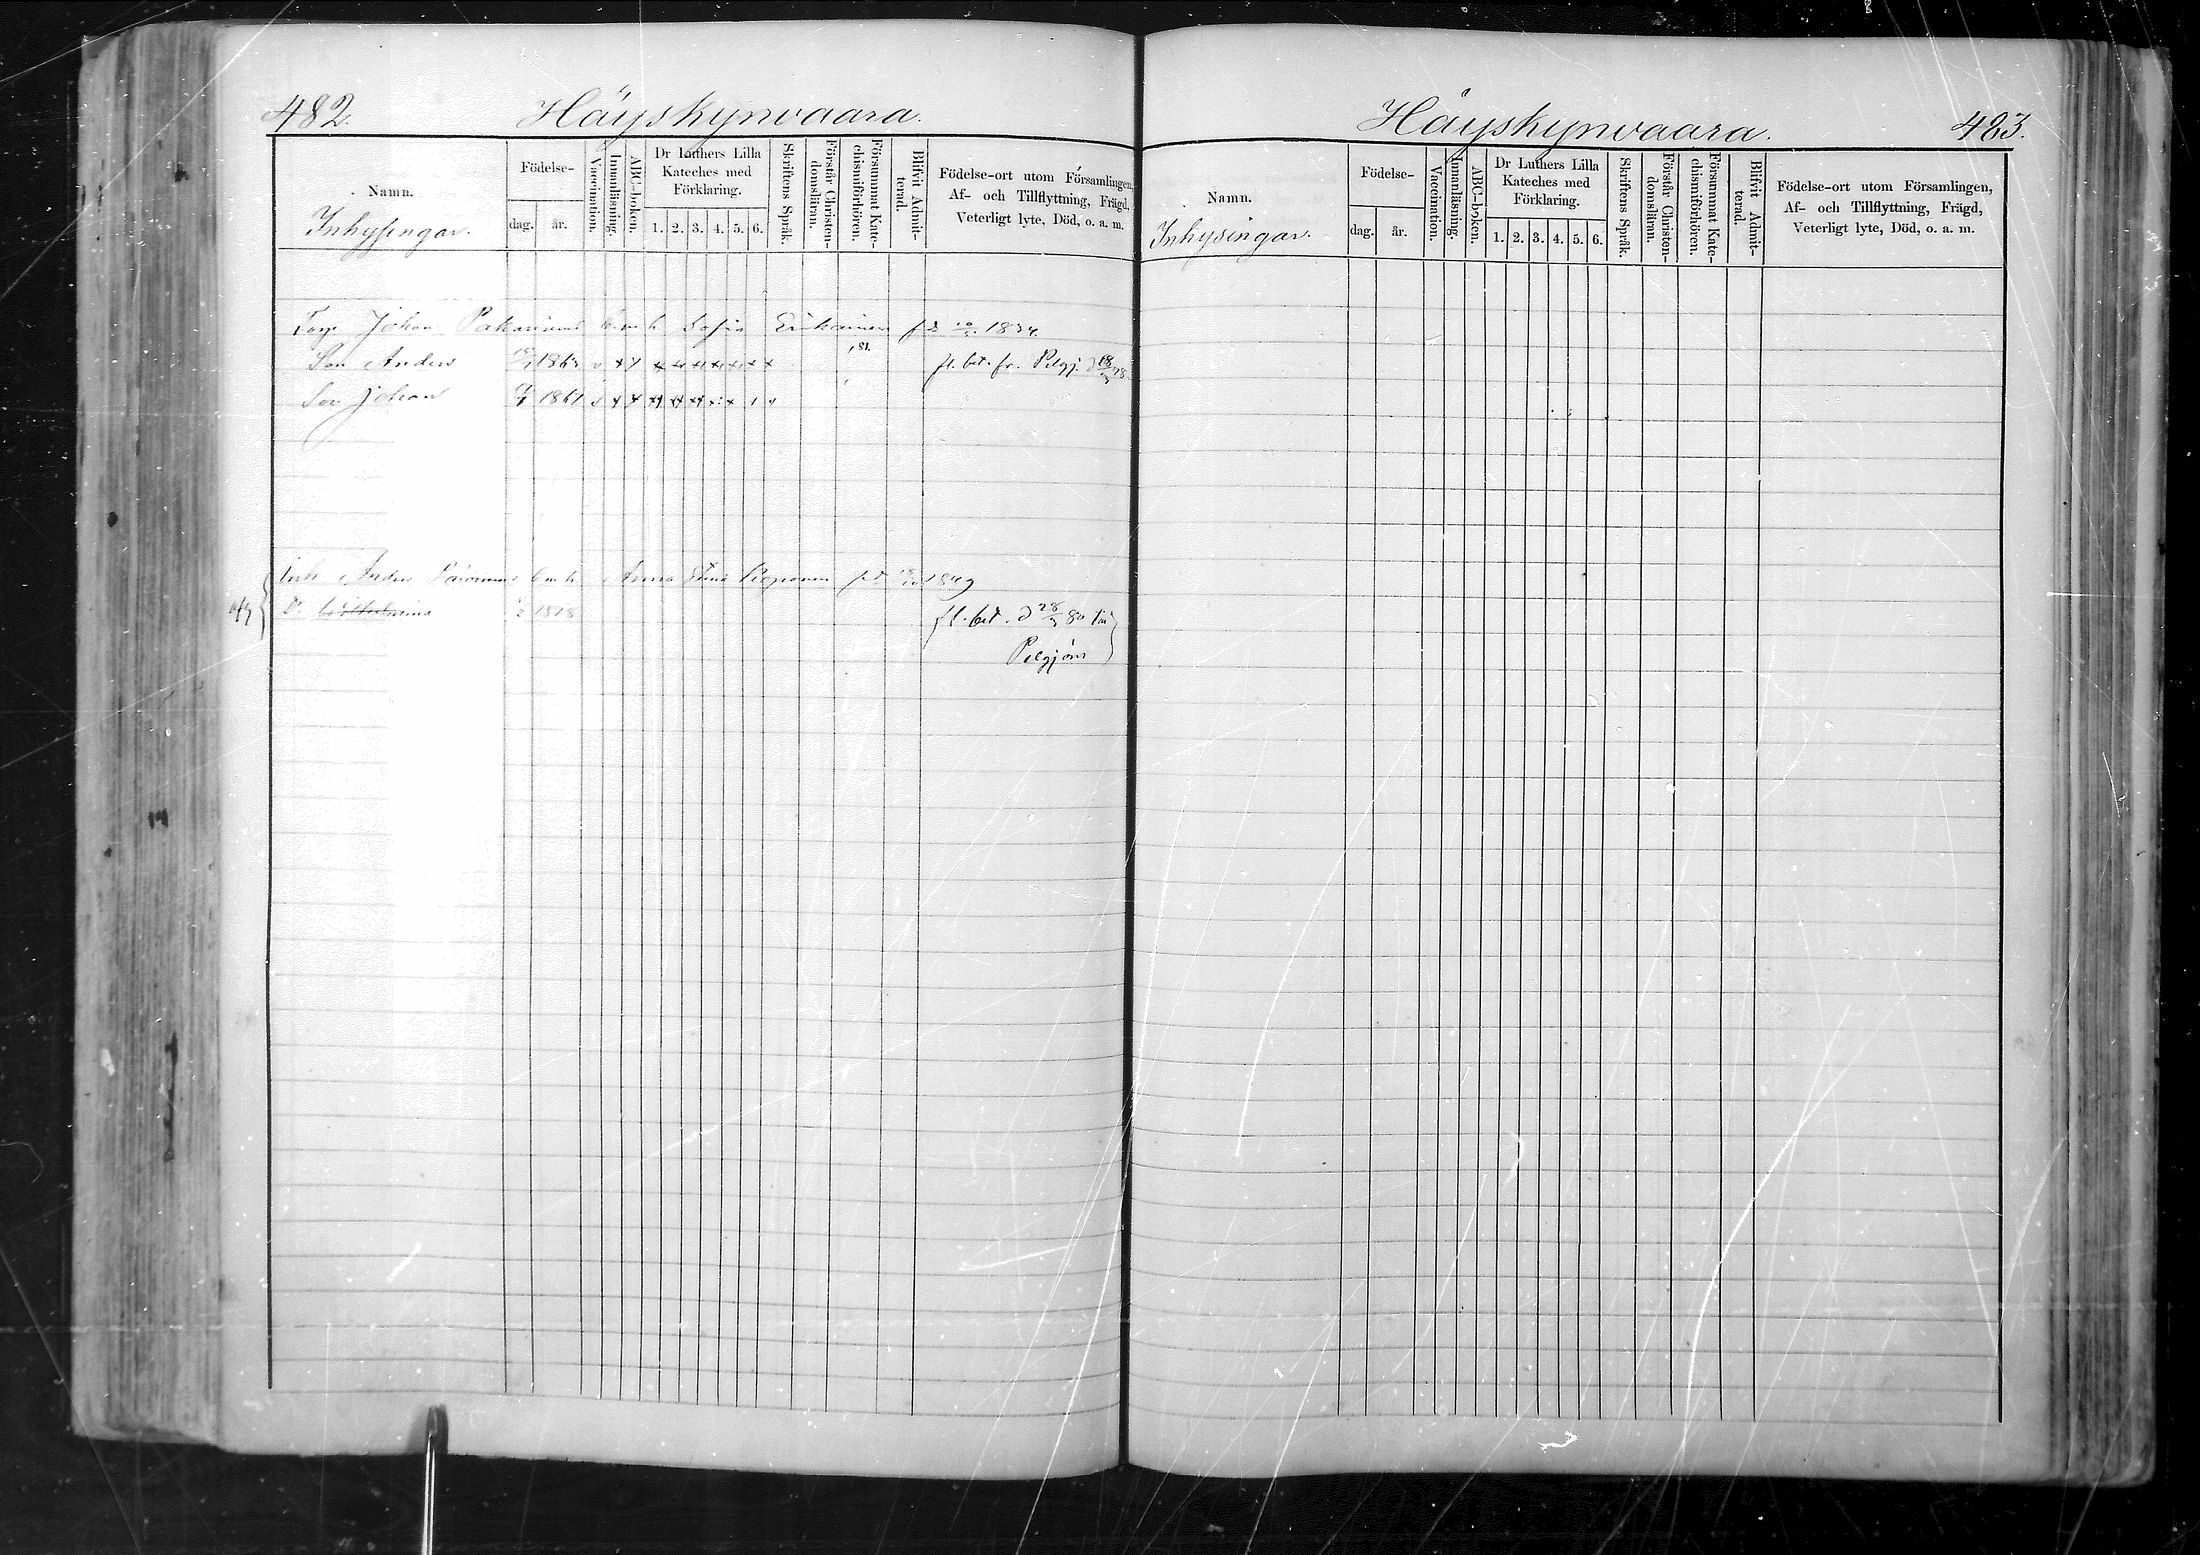 482.
Häyskynvaara.
Namn.
Inhysingar.
Födelse-
dag.
år.
Vaccination.
Innanläsning.
ABC-boken.
Dr Luthers Lilla
Kateches med
Förklaring.
1. 2. 3. 4. 5. 6.
Skriftens Språk.
Förstår Christen-
domsläran.
Försummat Kate-
chismiförhören.
Blifvit Admit-
terad.
Födelse-ort utom Församlingen,
Af- och Tillflyttning, Frägd,
Veterligt lyte, Död, o. a. m.
Johan Pakarinens Sofia 1834
Son Anders 1863 81. fl. bet. fr. Pelgj. d 18/3 78
Son Johan 1861
Inh Anders Anna Stina 1849
Dr Wilhelmina 1878 fl. bet. d 28/3 80 till
Pelgjärvi
Häyskynvaara.
483.
Namn.
Inhysingar.
Födelse-
dag.
år.
Vaccination.
Innanläsning.
ABC-boken.
Dr Luthers Lilla
Kateches med
Förklaring.
1. 2. 3. 4. 5. 6.
Skriftens Språk.
Förstår Christen-
domsläran.
Försummat Kate-
chismiförhören.
Blifvit Admit-
terad.
Födelse-ort utom Församlingen,
Af- och Tillflyttning, Frägd,
Veterligt lyte, Död, o. a. m.